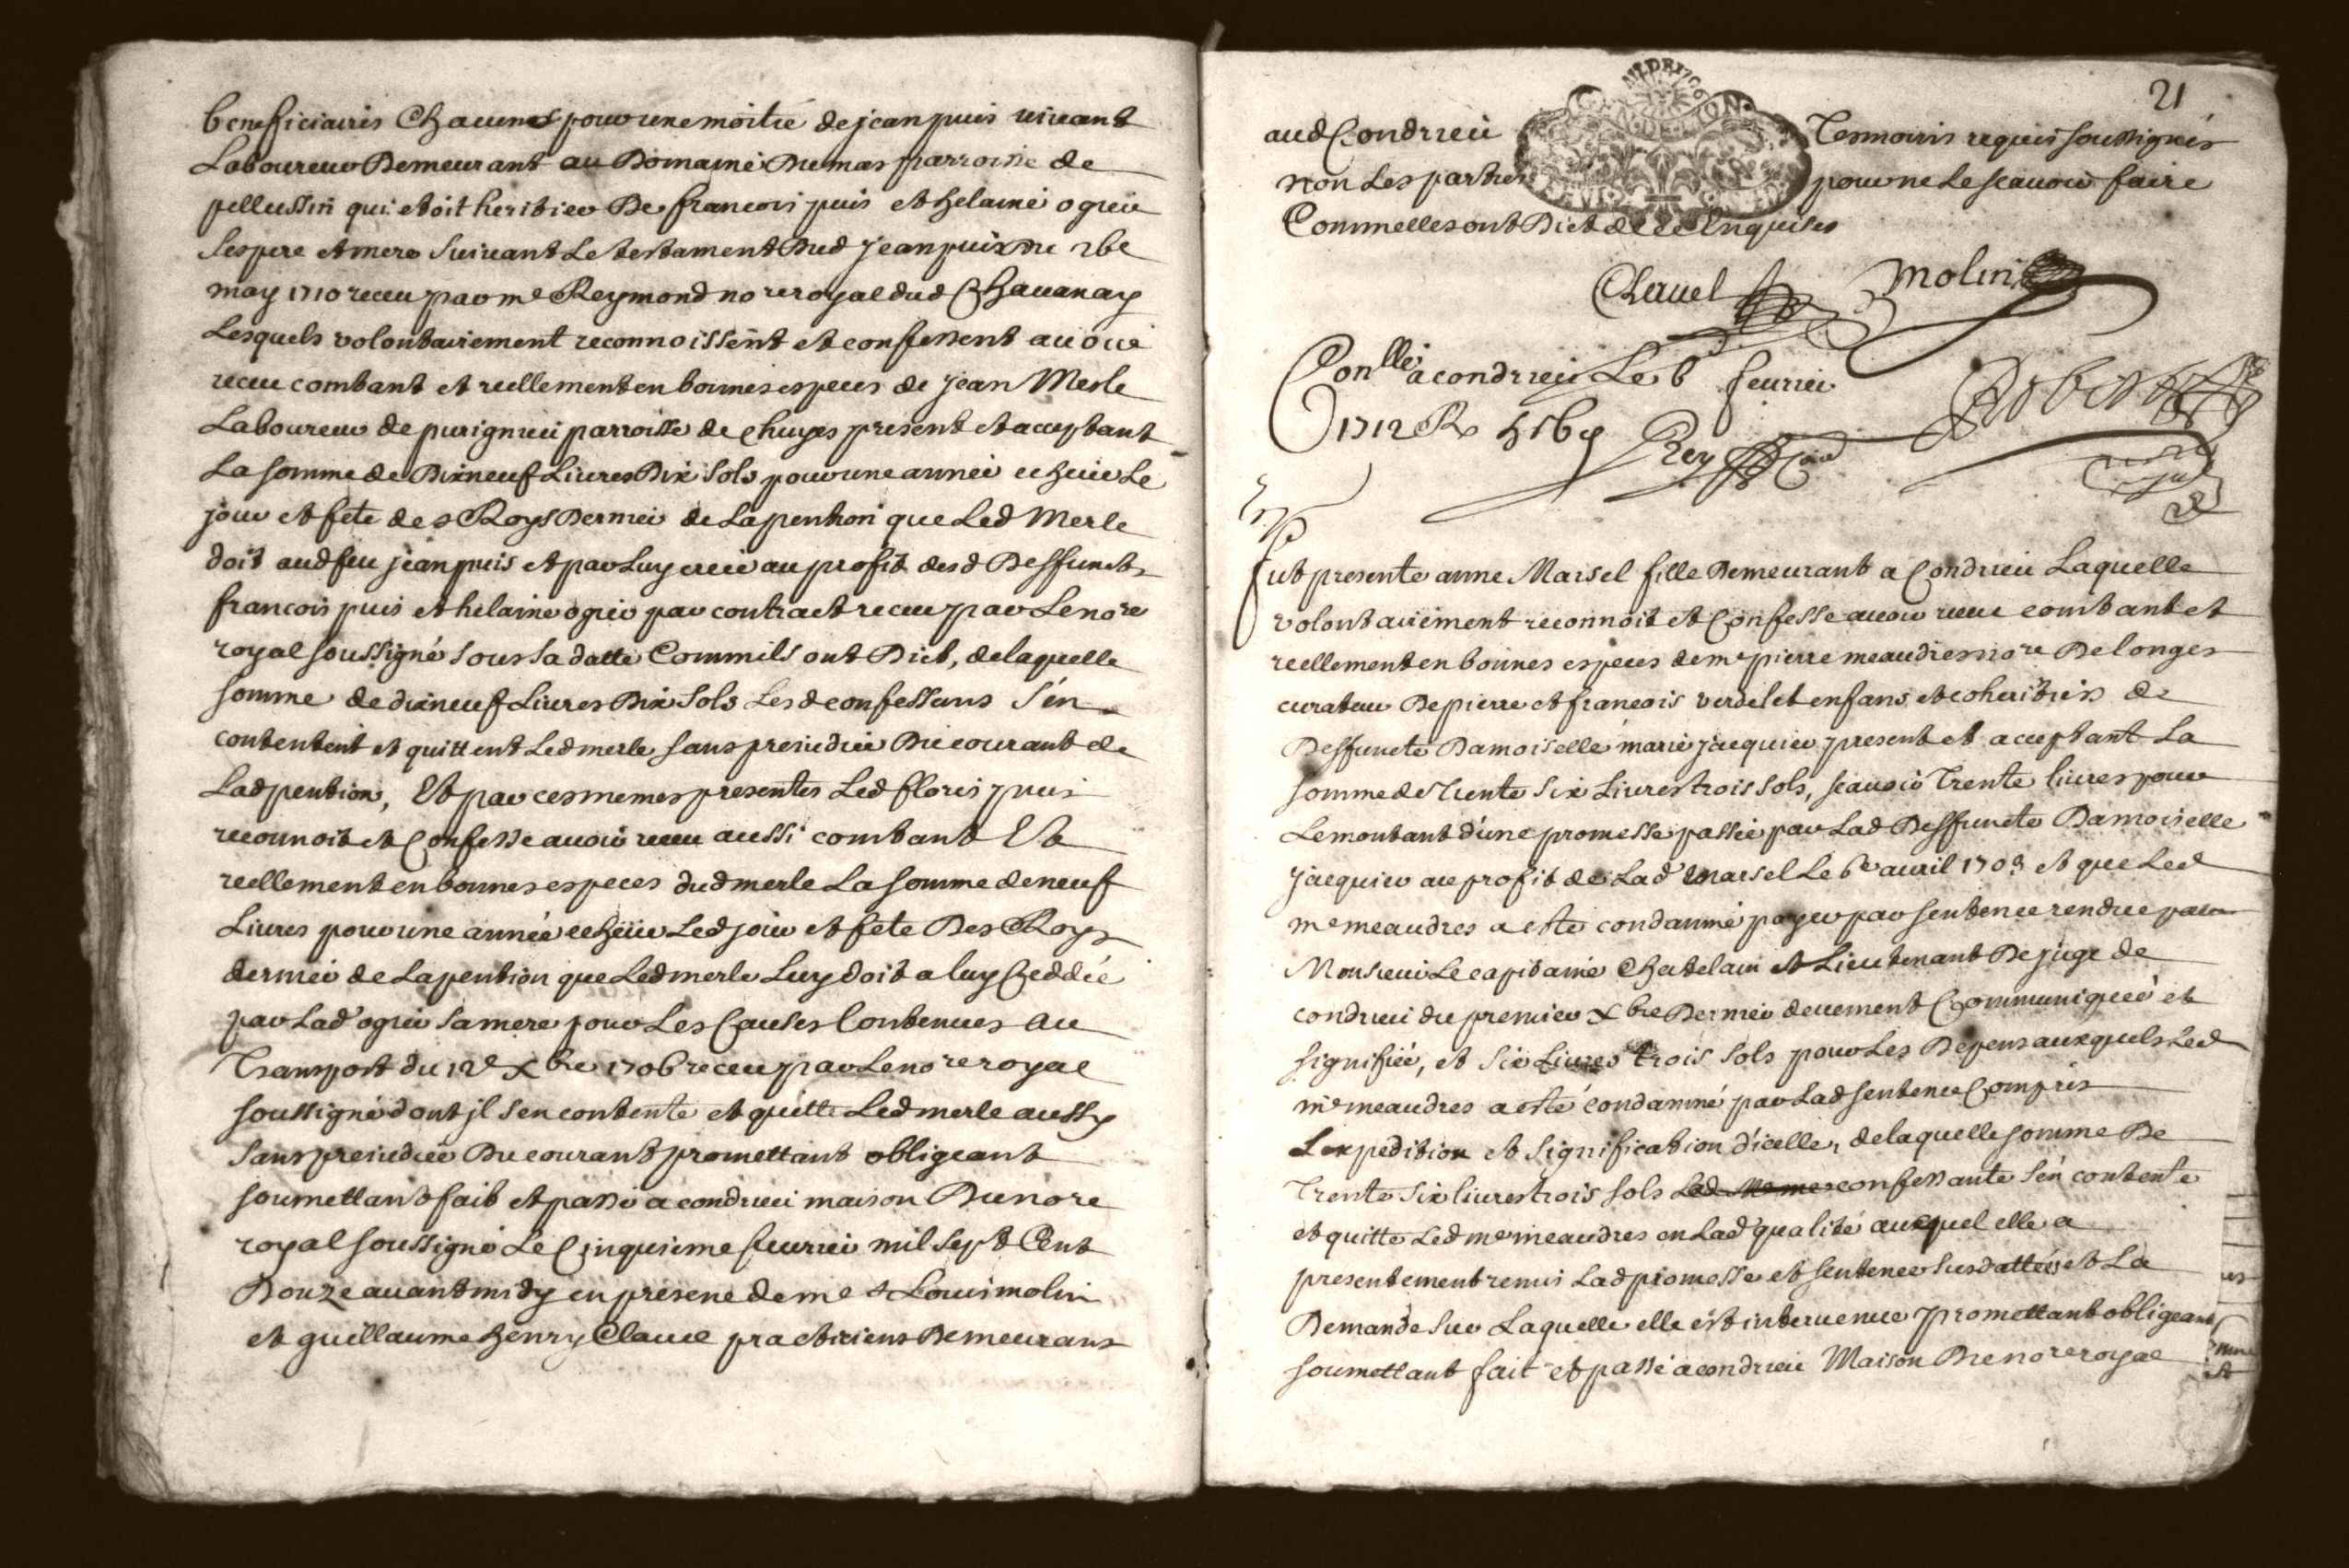 beneficiaires Chacunes pour une moitié de jean puis vivant
Laboureur Demeurant au Domaine Dumas parroisse de
pellussin qui etoit heritier De francois puis et helaine ogier
ses pere et mere suivant Le testament dud jean puis du
may 1710 receu par me Reymond nore royal dud Chavanay
Lesquels volontairement reconnoissent et confessent avoir
receu comtant et reellement en bonnes especes de jean Merle
Laboureur de purignieu parroisse de chuyes present et acceptant
La somme de Dix neuf Livres Dix sols pour une année echeüe Le
jour et fete des Roys Dernier de La pention que Led Merle
doit aud feu jean puis et par Luy creée au profit desd Deffuncts
francois puis et helaine ogier par contract receu par Le nore
royal soussigné sous sa datte Comm ils ont Dict, de laquelle
somme de dix neuf Livres Dix sols Lesd confessans s'en
contentent et quittent Led merle sans prejudice Du courant de
Lad pention, Et par ces memes presentes Led floris puis
reconnoit et Confesse avoir receu aussi comtant Et
reellement en bonnes especes dud merle La somme de neuf
Livres pour une année echeüe Led jour et fete Des Roys
dernier de La pention que Led merle Luy doit a luy Ceddée
par Lad ogier sa mere pour Les Causes Contenues au
Transport du 12e Xbre 1706 receu par Le nore royal
soussigné dont jl s'en contente et quitte Led merle aussy
sans prejudice Du courant promettant obligeant
soumettant fait et passé a condrieu maison Du nore
royal soussigné Le Cinquieme fevrier mil sept Cent
Douze avant midy en presence de me Louis molin
et guillaume henry Clavel practiciens Demeurans
21
aud Condrieu Tesmoins requis soussignés
non Les parties pour ne Le scavoir faire
Comm elles ont Dict de ce Enquises
Clavel Molin
Conllé a condrieu Le 6 fevrier
1712 R
Rey
fut presente anne Marsel fille Demeurant a Condrieu Laquelle
volontairement reconnoit et Confesse avoir receu comtant et
reellement en bonnes especes de me pierre meaudres nore De longes
curateur De pierre et francois verdelet enfans et coheritiers de
Deffuncte Damoiselle marie jacquier present et acceptant La
somme de Trente six Livres trois sols, scavoir Trente livres pour
Le montant d'une promesse passée par Lad Deffuncte Damoiselle
jacquier au profit de Lad Marsel Le 6e avril 1703 et que Led
me meaudres a esté condamné payer par sentence rendue par
Monsieur Le capitaine Chatelain et Lieutenant De juge de
condrieu du premier Xbre Dernier deuement Communiqueé et
signifiée, et six Livres trois sols pour Les Depens auxquels Led
me meaudres a esté condamné par Lad sentence Compris
L expedition et signification d'icelle, de laquelle somme De
Trente six livres trois sols confessante s'en contente
et quitte Led me meaudres en Lad qualité auxquel elle a
presentement remis Lad promesse et sentence susdattées et La
Demande sur Laquelle elle est intervenue promettant obligeant
soumettant fait et passé a condrieu Maison Du nore royal